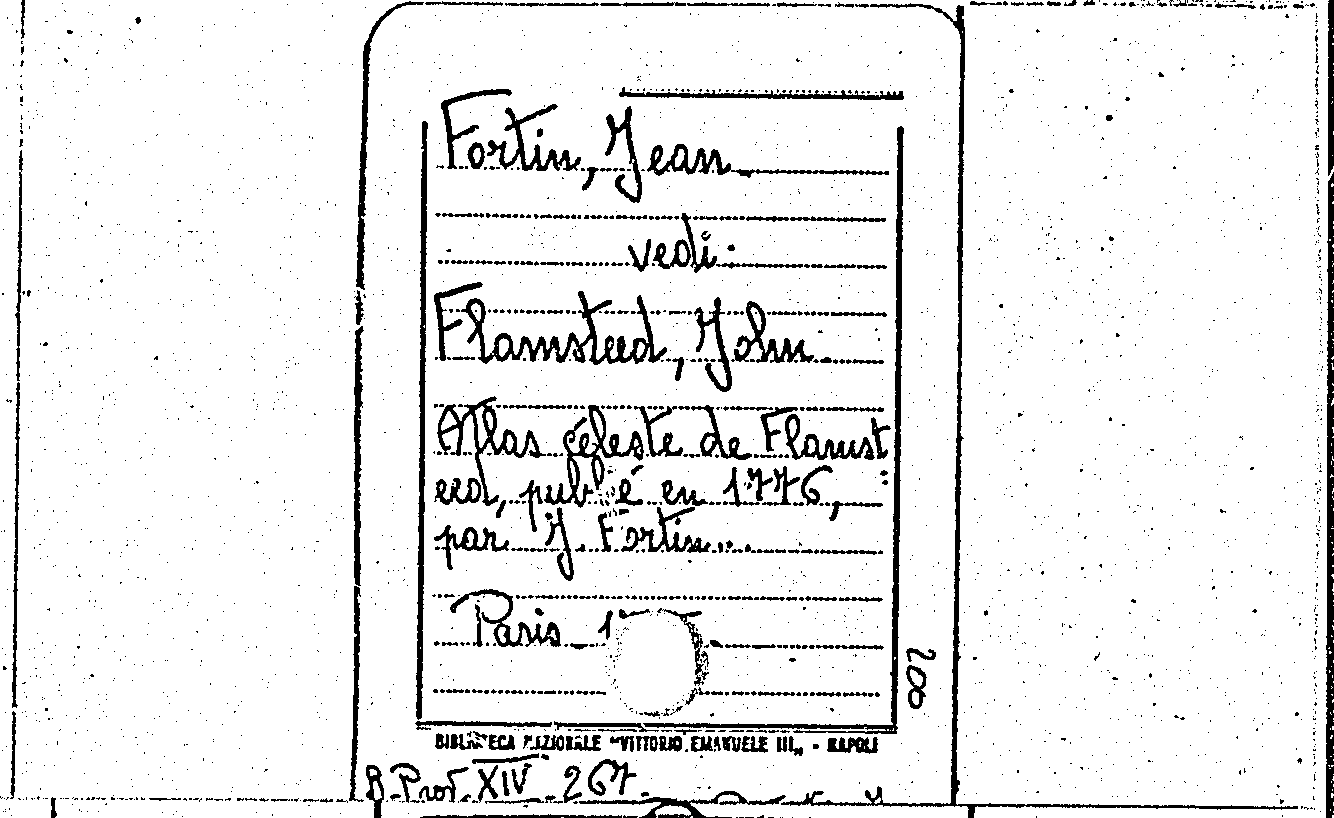 Fortin, Jean.
vedi:
Flamsteed, John.
Atlas céleste de Flamst
eed, publié en 1776,
par J. Fortin...
Paris
200
BIBLIOTECA NAZIONALE "VITTORIO EMANUELE III" - NAPOLI
B. Prov. XIV. 267.